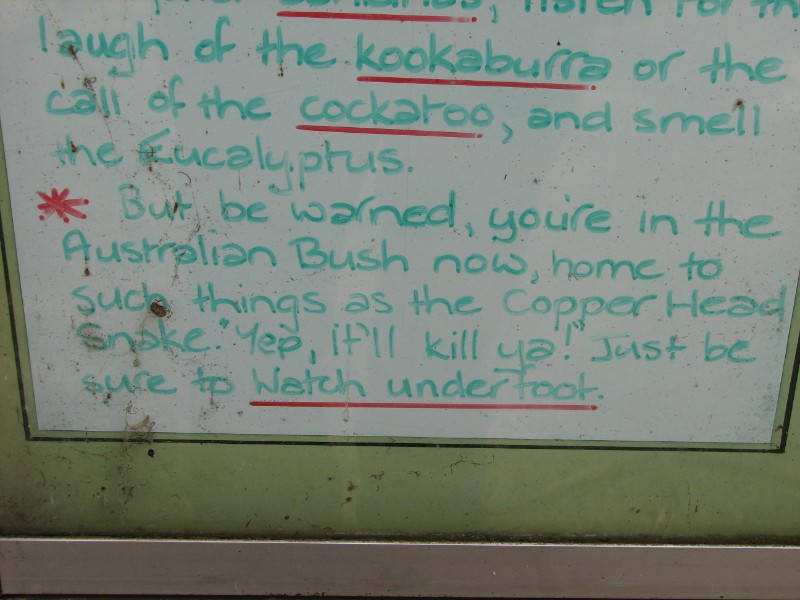 listen for the
laugh of the kookaburra or the
call of the cockatoo, and smell
the Eucalyptus.
* But be warned, you're in the
Australian Bush now, home to
such things as the Copper Head
Snake. "Yep, it'll kill ya!" Just be
sure to watch underfoot.